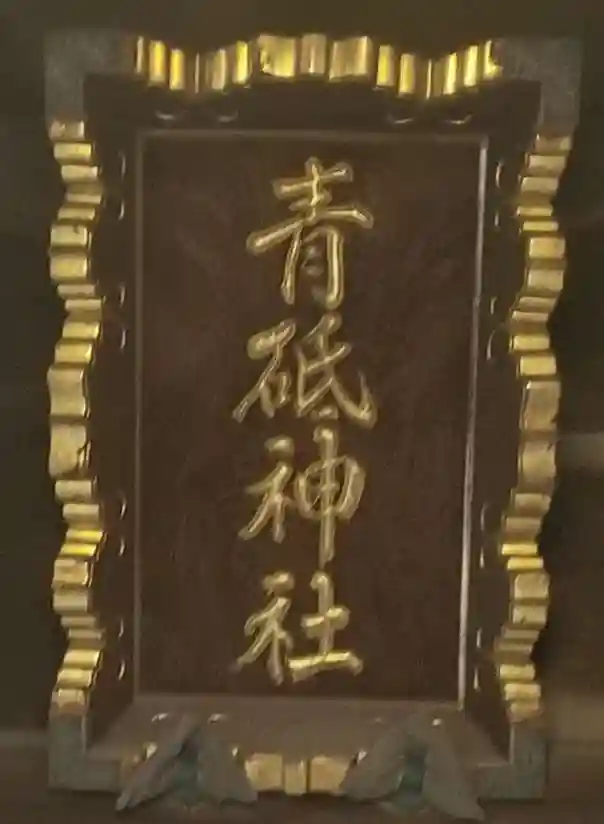 青砥神社